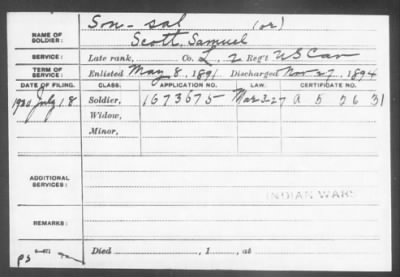 Son-sal (or)
NAME OF SOLDIER: Scott, Samuel
SERVICE: Late rank, Co. L, 2 Reg't US Cav
TERM OF SERVICE: Enlisted May 8, 1891, Discharged Nov 27, 1894
DATE OF FILING. CLASS. APPLICATION NO. LAW. CERTIFICATE NO.
1930 July 18 Soldier, 1673675 Mar 3-27 A 5 26 31
Widow,
Minor,
ADDITIONAL SERVICES:
INDIAN WARS
REMARKS:
Died , 1 , at